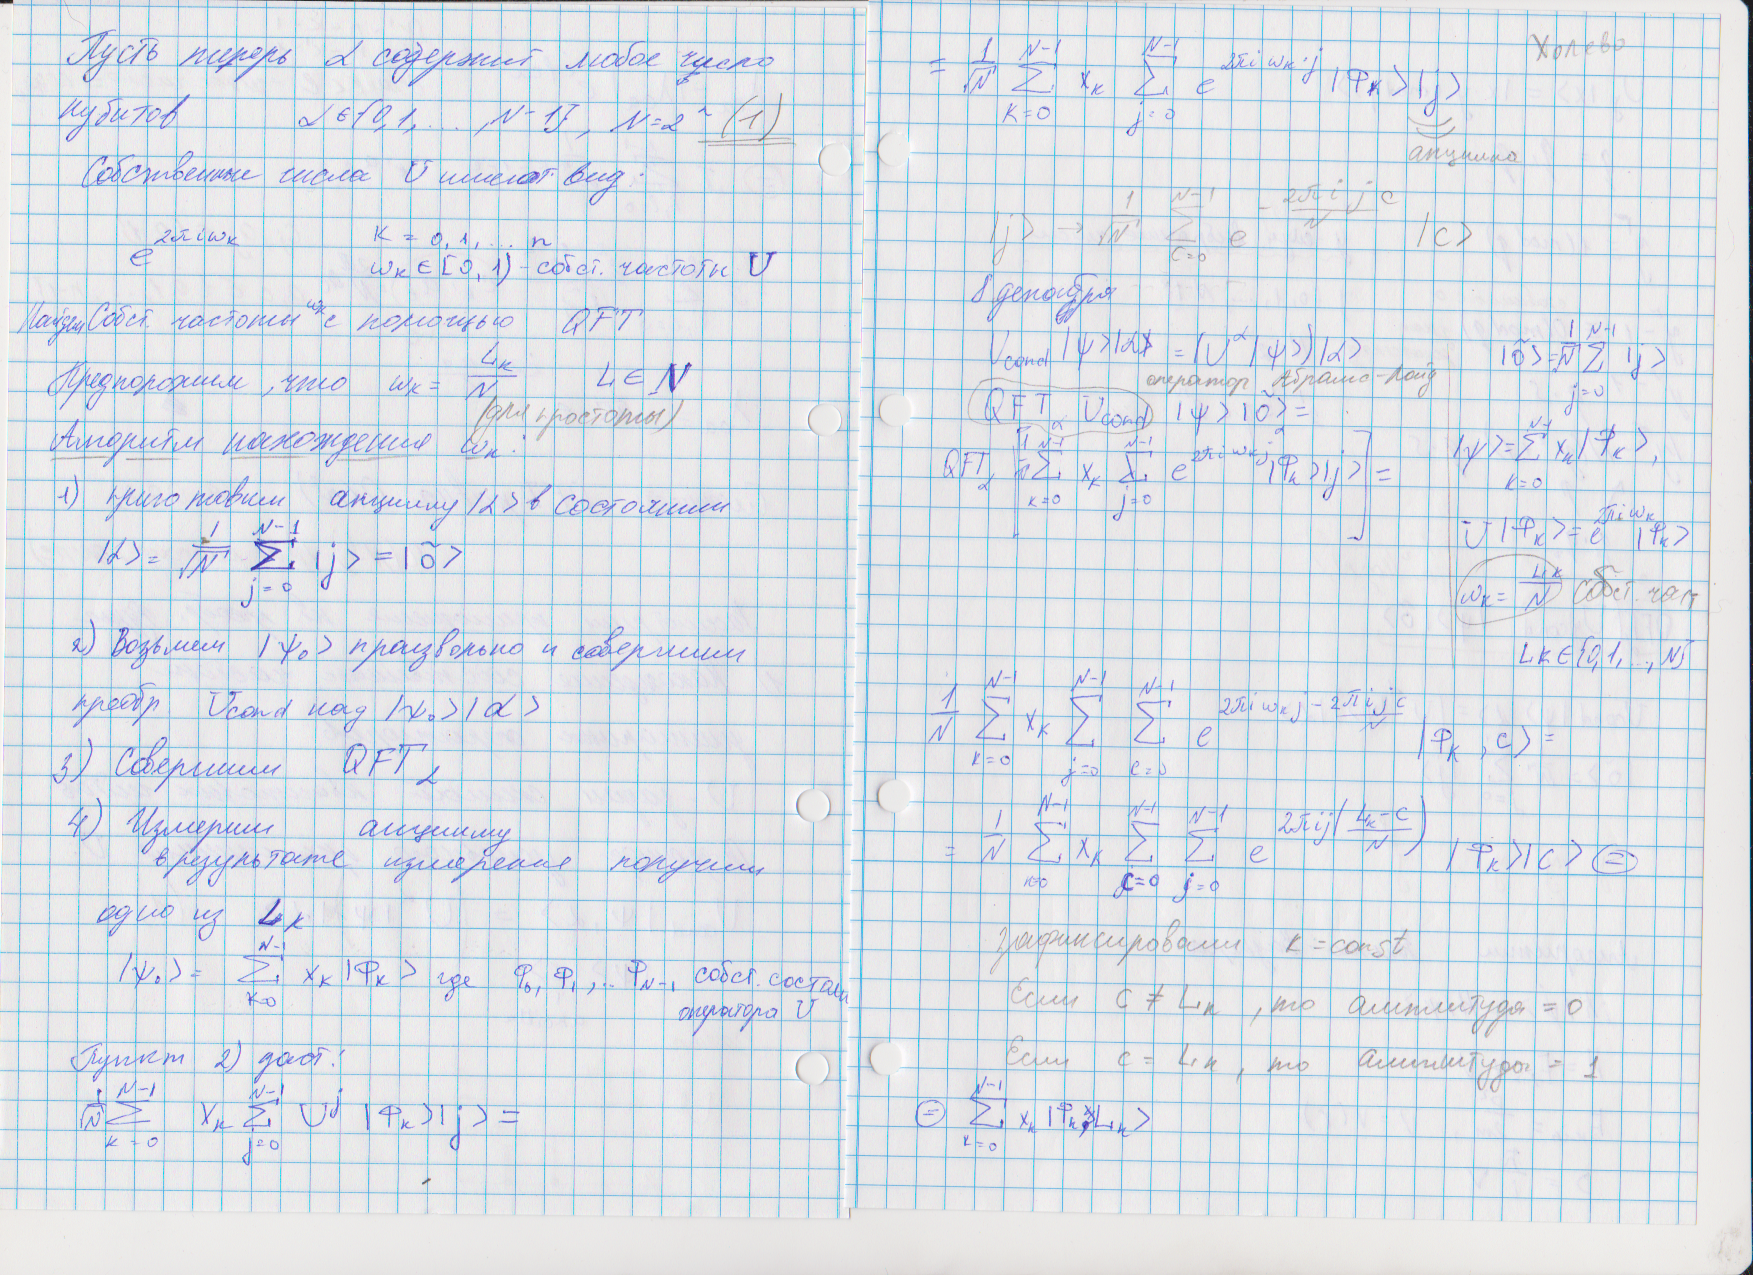 Пусть теперь α содержит любое число
кубитов α ∈ {0,1,...,N-1}, N=2^n (1)
Собственные числа U имеют вид:
e^{2πiω_k} k = 0,1,...n
ω_k ∈ [0,1) - собст. частоты U
Найдем собст. частоты ω_k с помощью QFT
Предположим, что ω_k = L_k/N L ∈ N
(для простоты)
Алгоритм нахождения ω_k:
1) приготовим анциллу |α> в состоянии
|α> = 1/√N ∑_{j=0}^{N-1} |j> = |õ>
2) Возьмем |ψ₀> произвольно и совершим
преобр U_cond над |ψ₀>|α>
3) Совершим QFT_α
4) Измерим анциллу
в результате измерения получим
одно из L_k
|ψ₀> = ∑_{k=0}^{N-1} x_k |Φ_k> где Φ₀, Φ₁,.. Φ_{N-1} собст. состоян
оператора U
Пункт 2) даст:
1/√N ∑_{k=0}^{N-1} x_k ∑_{j=0}^{N-1} U^j |Φ_k>|j> =
Холево
= 1/√N ∑_{k=0}^{N-1} x_k ∑_{j=0}^{N-1} e^{2πiω_k·j} |Φ_k>|j>
анцилла
|j> → 1/√N ∑_{c=0}^{N-1} e^{-2πijc/N} |c>
8 декабря
U_cond |ψ>|α> = (U^α|ψ>)|α> |õ> = 1/√N ∑_{j=0}^{N-1} |j>
оператор Абрамс-Лойд
QFT_α U_cond |ψ>|õ>_α =
|ψ> = ∑_{k=0}^{N-1} x_k |Φ_k>,
QFT_α [1/√N ∑_{k=0}^{N-1} x_k ∑_{j=0}^{N-1} e^{2πiω_k j} |Φ_k>|j>] =
U|Φ_k> = e^{2πiω_k} |Φ_k>
ω_k = L_k/N собст. част
L_k ∈ {0,1,..,N}
1/N ∑_{k=0}^{N-1} x_k ∑_{j=0}^{N-1} ∑_{c=0}^{N-1} e^{2πiω_k j - 2πijc/N} |Φ_k, c> =
= 1/N ∑_{k=0}^{N-1} x_k ∑_{c=0}^{N-1} ∑_{j=0}^{N-1} e^{2πij(L_k-c/N)} |Φ_k>|c> =
зафиксировали k = const
Если c ≠ L_k, то амплитуда = 0
Если c = L_k, то амплитуда = 1
= ∑_{k=0}^{N-1} x_k |Φ_k>|L_k>